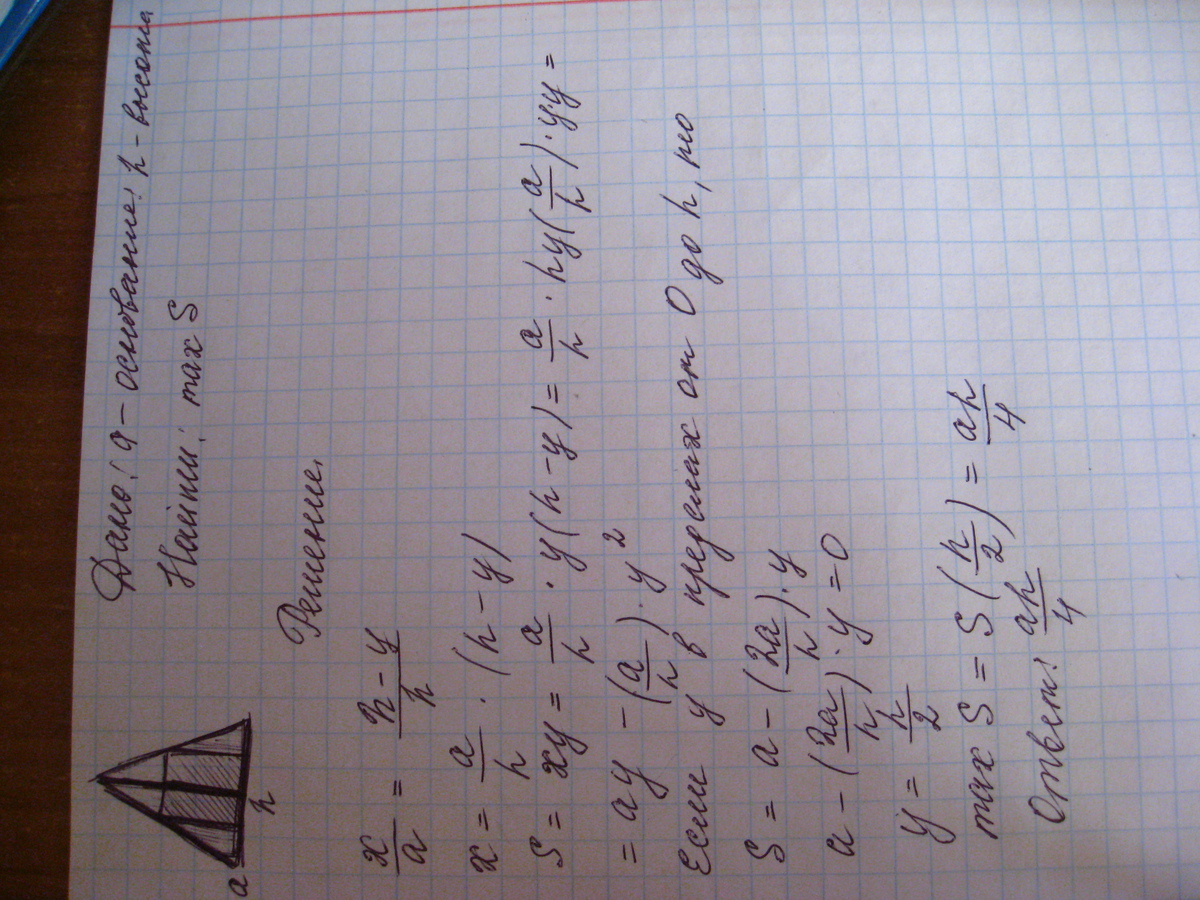 Дано: a – основание; h – высота
Найти: max S
Решение.
a
h
x/a = (h – y)/h
x = a/h · (h – y)
S = xy = a/h · y(h – y) = a/h · hy(a/h) · y·y =
= ay – (a/h) · y²
Если y в пределах от 0 до h, то
S = a – (2a/h) · y
a – (2a/h) · y = 0
y = h/2
max S = S(h/2) = ah/4
Ответ: ah/4